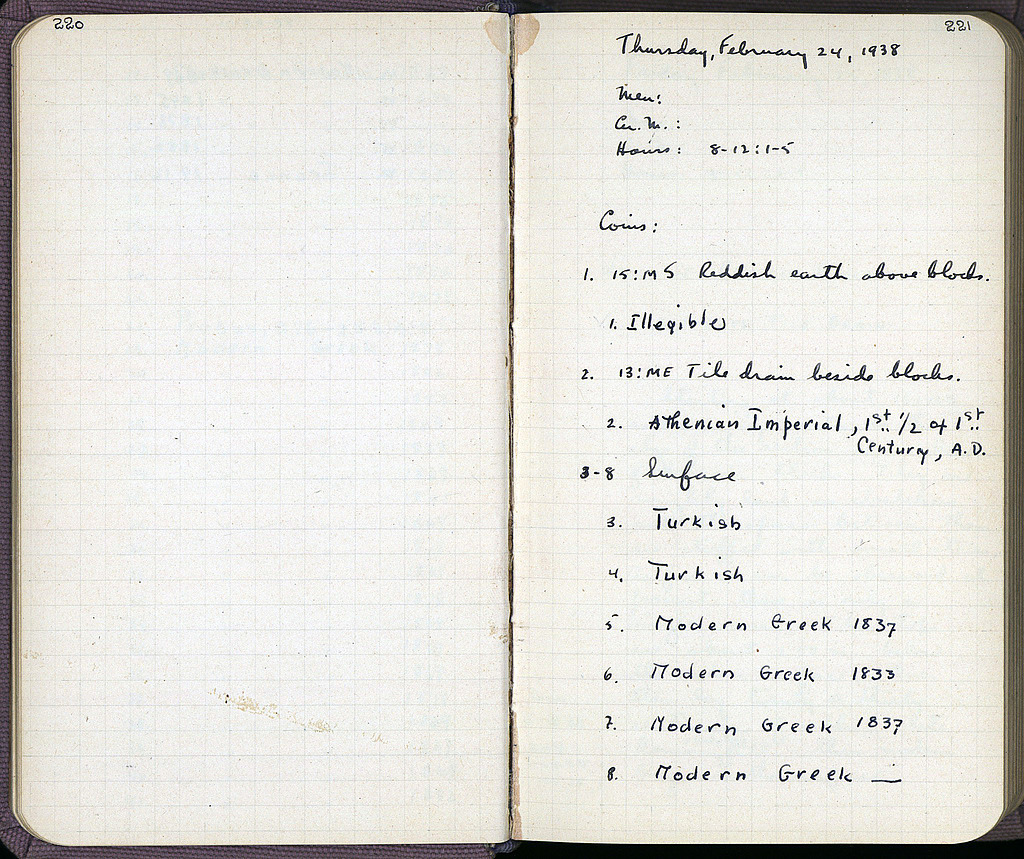 220
221
Thursday, February 24, 1938
Men:
Cu. M. :
Hours: 8-12:1-5
Coins:
1. 15:MS Reddish earth above blocks.
1. Illegible
2. 13:ME Tile drain beside blocks.
2. Athenian Imperial, 1st 1/2 of 1st
Century, A.D.
3-8 Surface
3. Turkish
4. Turkish
5. Modern Greek 1837
6. Modern Greek 1833
7. Modern Greek 1837
8. Modern Greek —